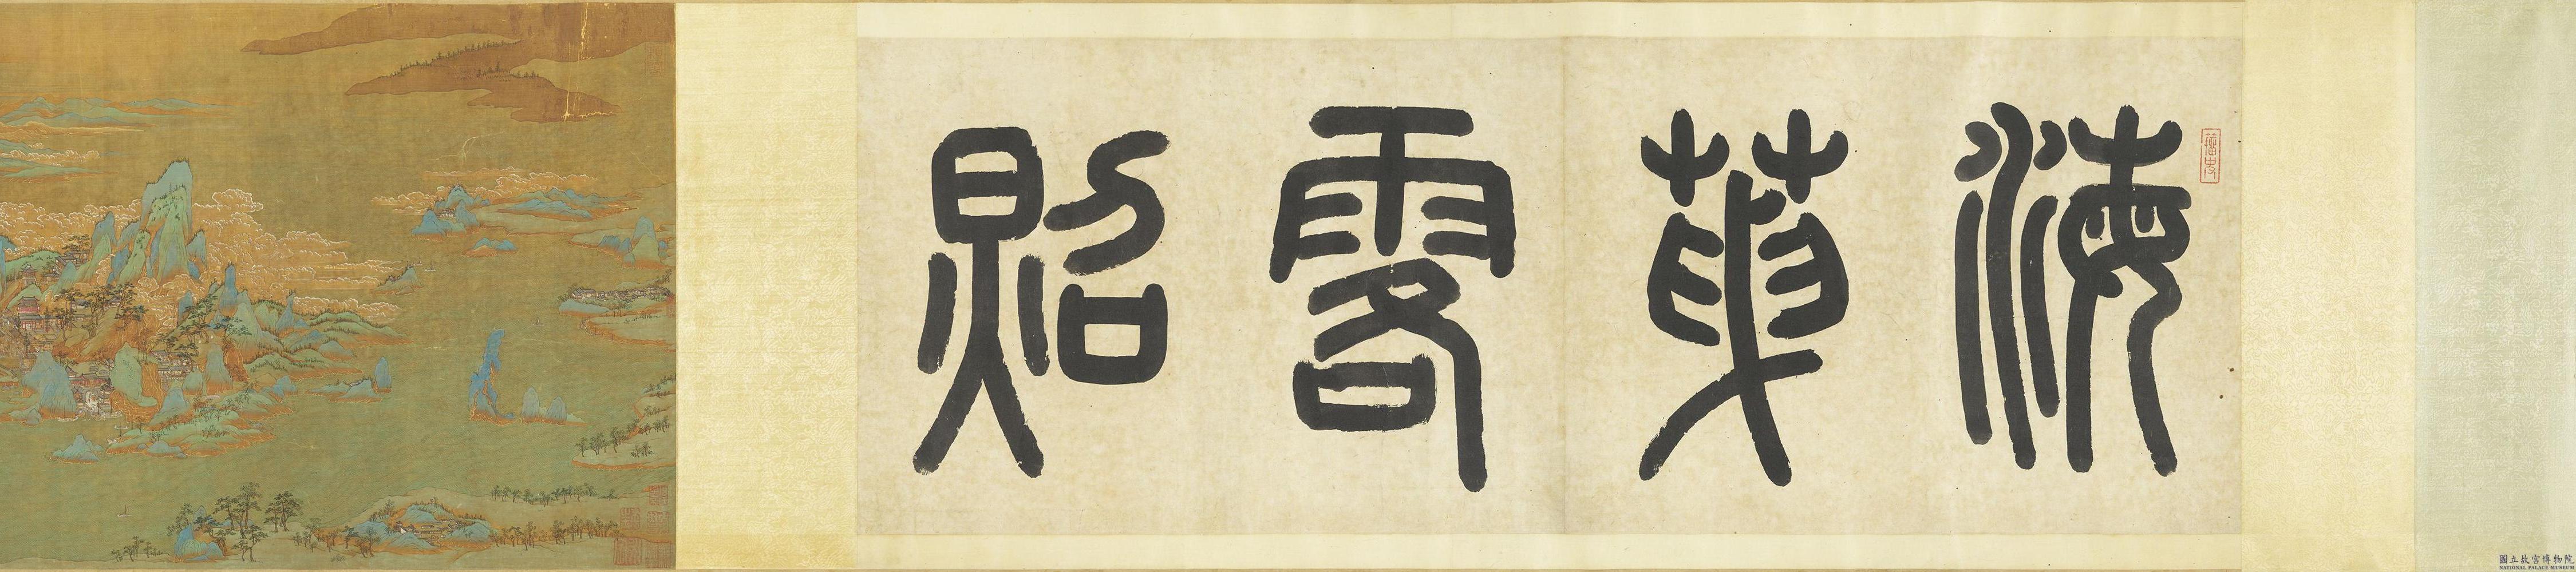 海天落照
國立故宮博物院
NATIONAL PALACE MUSEUM